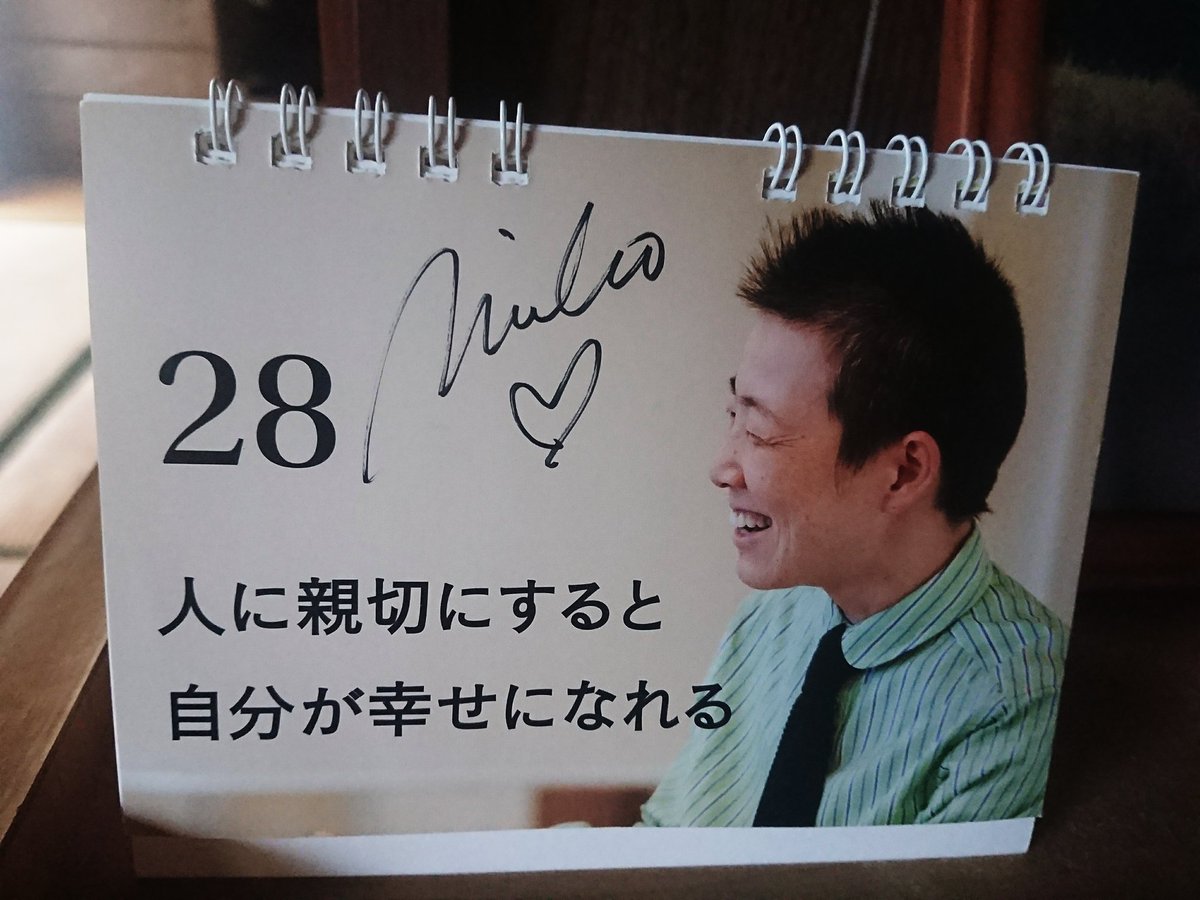 28
人に親切にすると
自分が幸せになれる